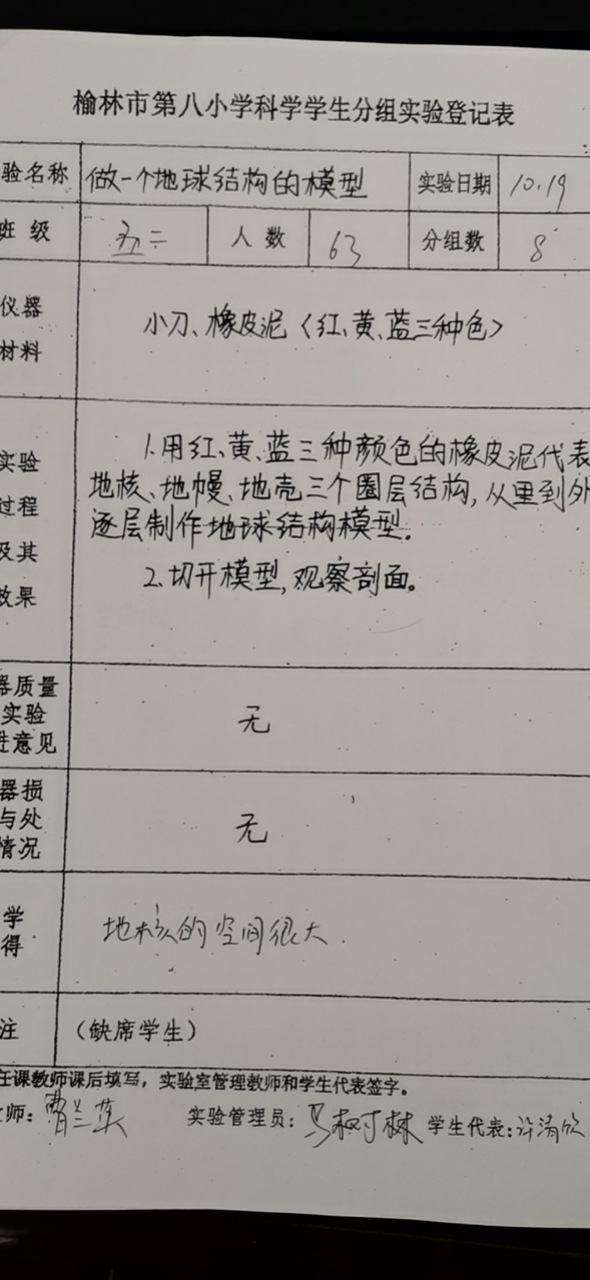 榆林市第八小学科学学生分组实验登记表
验名称 做一个地球结构的模型 实验日期 10.19
班级 五二 人数 63 分组数 8
仪器
材料
小刀、橡皮泥〈红、黄、蓝三种色〉
实验
过程
及其
效果
1.用红、黄、蓝三种颜色的橡皮泥代表
地核、地幔、地壳三个圈层结构,从里到外
逐层制作地球结构模型.
2.切开模型,观察剖面。
器质量
实验
进意见
无
器损
与处
情况
无
学
得
地核的空间很大.
注 (缺席学生)
任课教师课后填写，实验室管理教师和学生代表签字。
教师: 曹兰英 实验管理员: 马树林 学生代表:许清欣